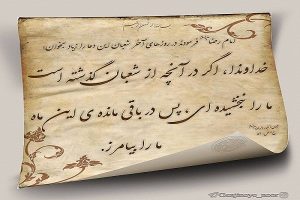 امام رضا فرمودند در روزهای آخر شعبان این دعا را زیاد بخوان:
خداوندا، اگر در آنچه از شعبان گذشته است
ما را نبخشیده ای، پس در باقی مانده ی این ماه
ما را بیامرز.